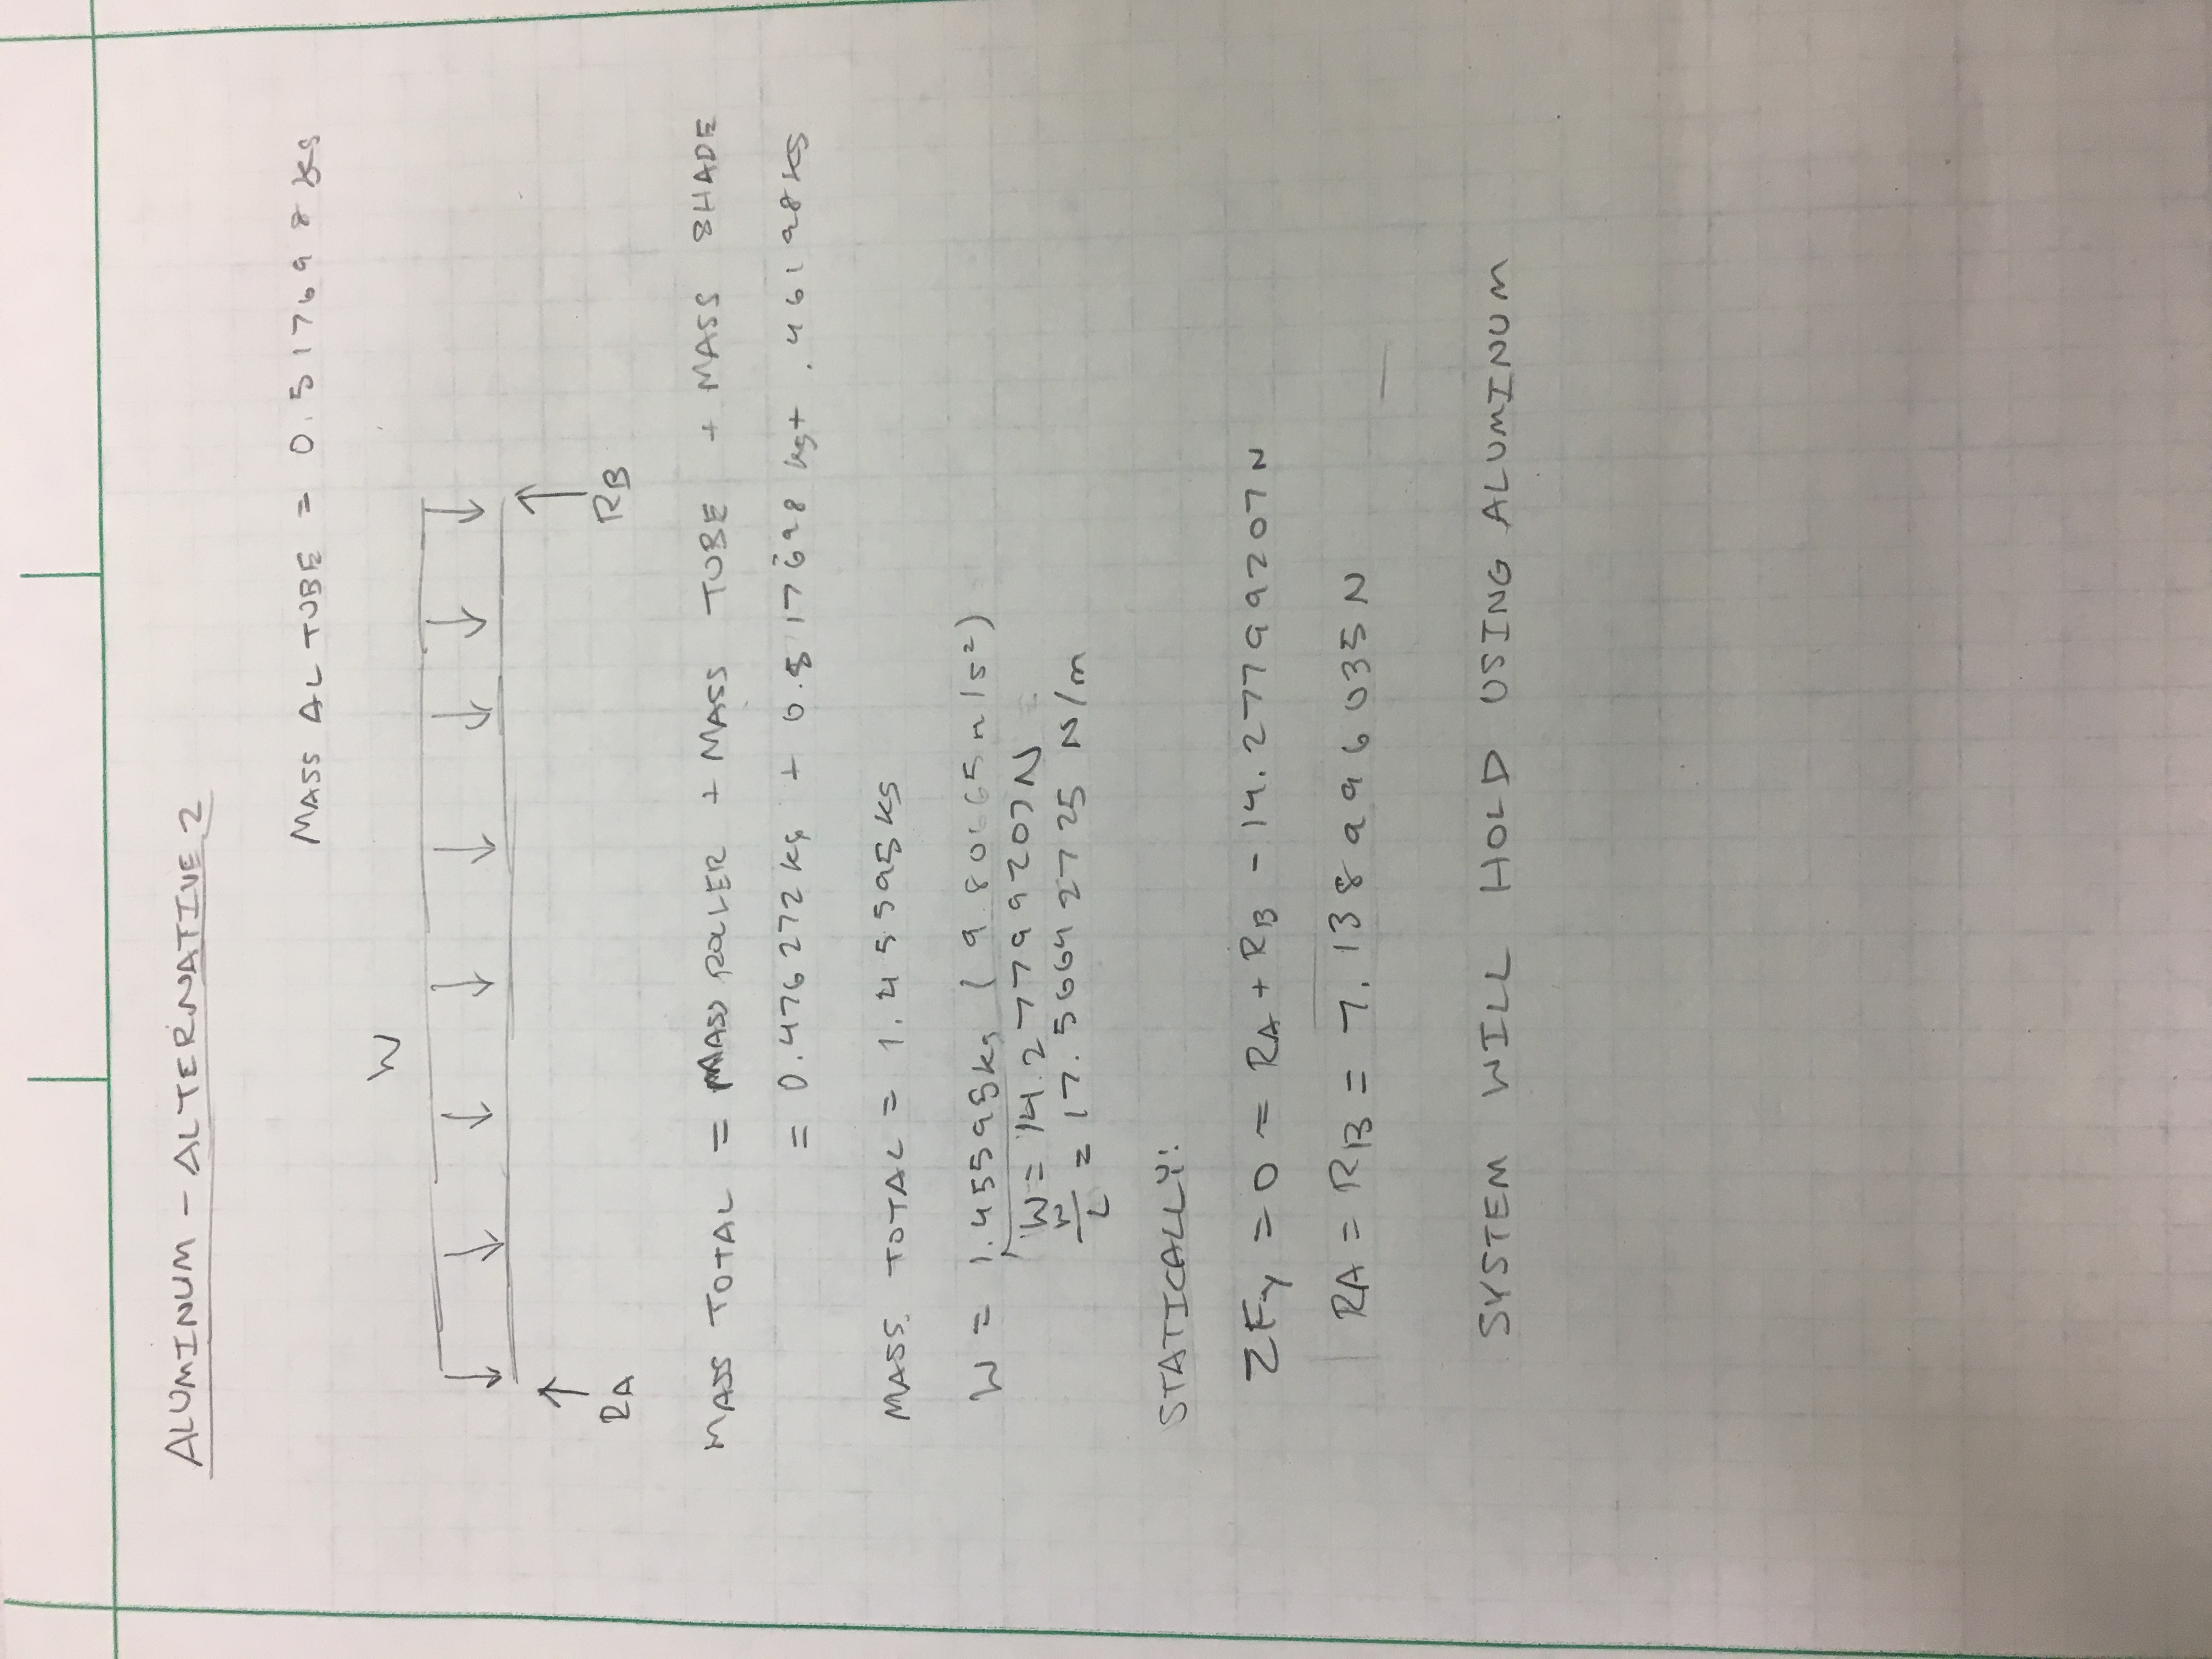 ALUMINUM - ALTERNATIVE 2
MASS AL TUBE = 0.517698 kg
W
RA
RB
MASS TOTAL = MASS ROLLER + MASS TUBE + MASS SHADE
= 0.476272 kg + 0.517698 kg + .46198 kg
MASS TOTAL = 1.45595 kg
W = 1.45595 kg (9.80665 m/s²)
W = 14.27799207 N
W/L = 17.56642725 N/m
STATICALLY:
ΣFy = 0 = RA + RB - 14.27799207 N
RA = RB = 7.138996035 N
SYSTEM WILL HOLD USING ALUMINUM